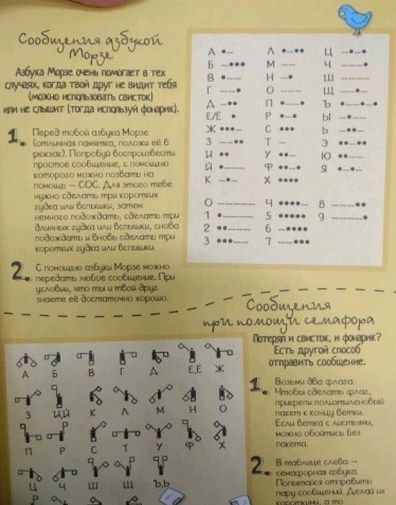 Сообщения азбукой
Морзе
Азбука Морзе очень помогает в тех
случаях, когда твой друг не видит тебя
(можно использовать свисток)
или не слышит (тогда используй фонарик).
1. Перед тобой азбука Морзе
(отличная памятка, положи её в
рюкзак). Попробуй воспроизвести
простое сообщение, с помощью
которого можно позвать на
помощь – СОС. Для этого тебе
нужно сделать три коротких
гудка или вспышки, затем
немного подождать, сделать три
длинных гудка или вспышки, снова
подождать и вновь сделать три
коротких гудка или вспышки.
2. С помощью азбуки Морзе можно
передать любое сообщение. При
условии, что ты и твой друг
знаете её достаточно хорошо.
А Л Ц
Б М Ч
В Н Ш
Г О Щ
Д П Ъ
Е/Ё Р Ы
Ж С Ь
З Т Э
И У Ю
Й Ф Я
К Х
0 4 8
1 5 9
2 6
3 7
Сообщения
при помощи семафора
Потерял и свисток, и фонарик?
Есть другой способ
отправить сообщение.
1. Возьми два флага.
Чтобы сделать флаг,
прикрепи полиэтиленовый
пакет к концу ветки.
Если ветка с листьями,
можно обойтись без
пакета.
2. В таблице слева –
семафорная азбука.
Попытайся отправить
пару сообщений. Делай их
короткими, а то
А Б В Г Д Е,Ё Ж
З И,Й К Л М Н О
П Р С Т У Ф Х
Ц Ч Ш Щ Ы Ь,Ъ